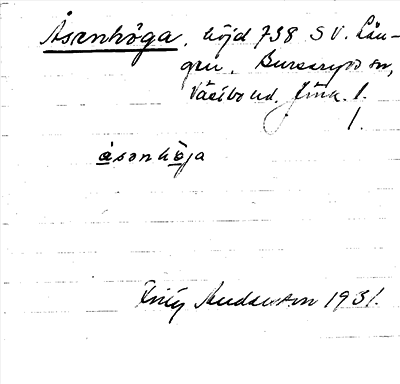 Åsenhöga, höjd 738 SV. Län-
gru, Bursery[d] sn,
Västbo hd, Jönk. l.
1.
åsɘnhöja
Andersson 1931.